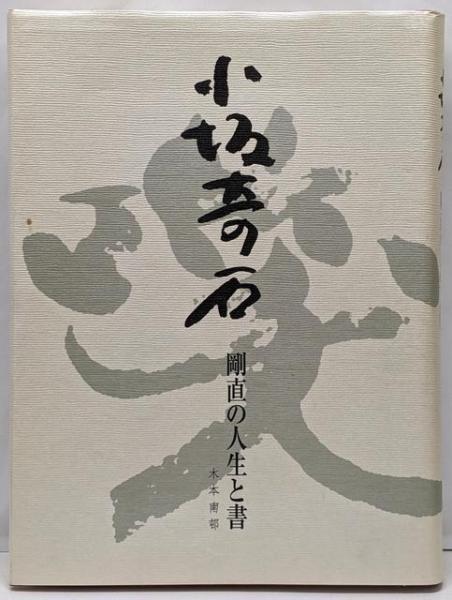 小坂奇石
剛直の人生と書
木本南邨